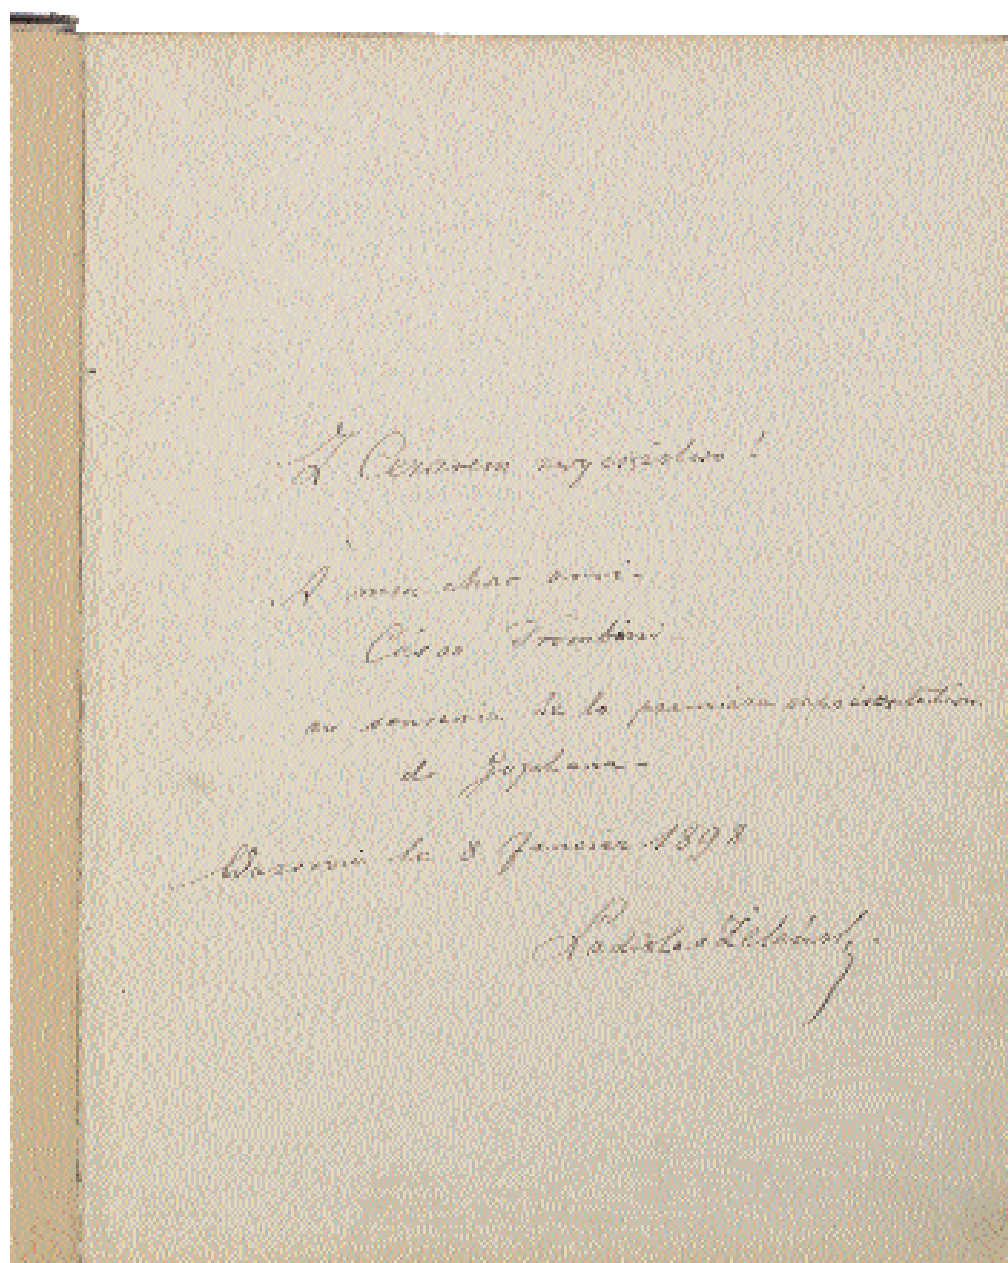 Z Cezarem zwycięstwo!
A mon cher ami
César Trombini
au souvenir de la première représentation
de Goplana
Varsovie le 8 Janvier 1898
Ladislas Żeleński